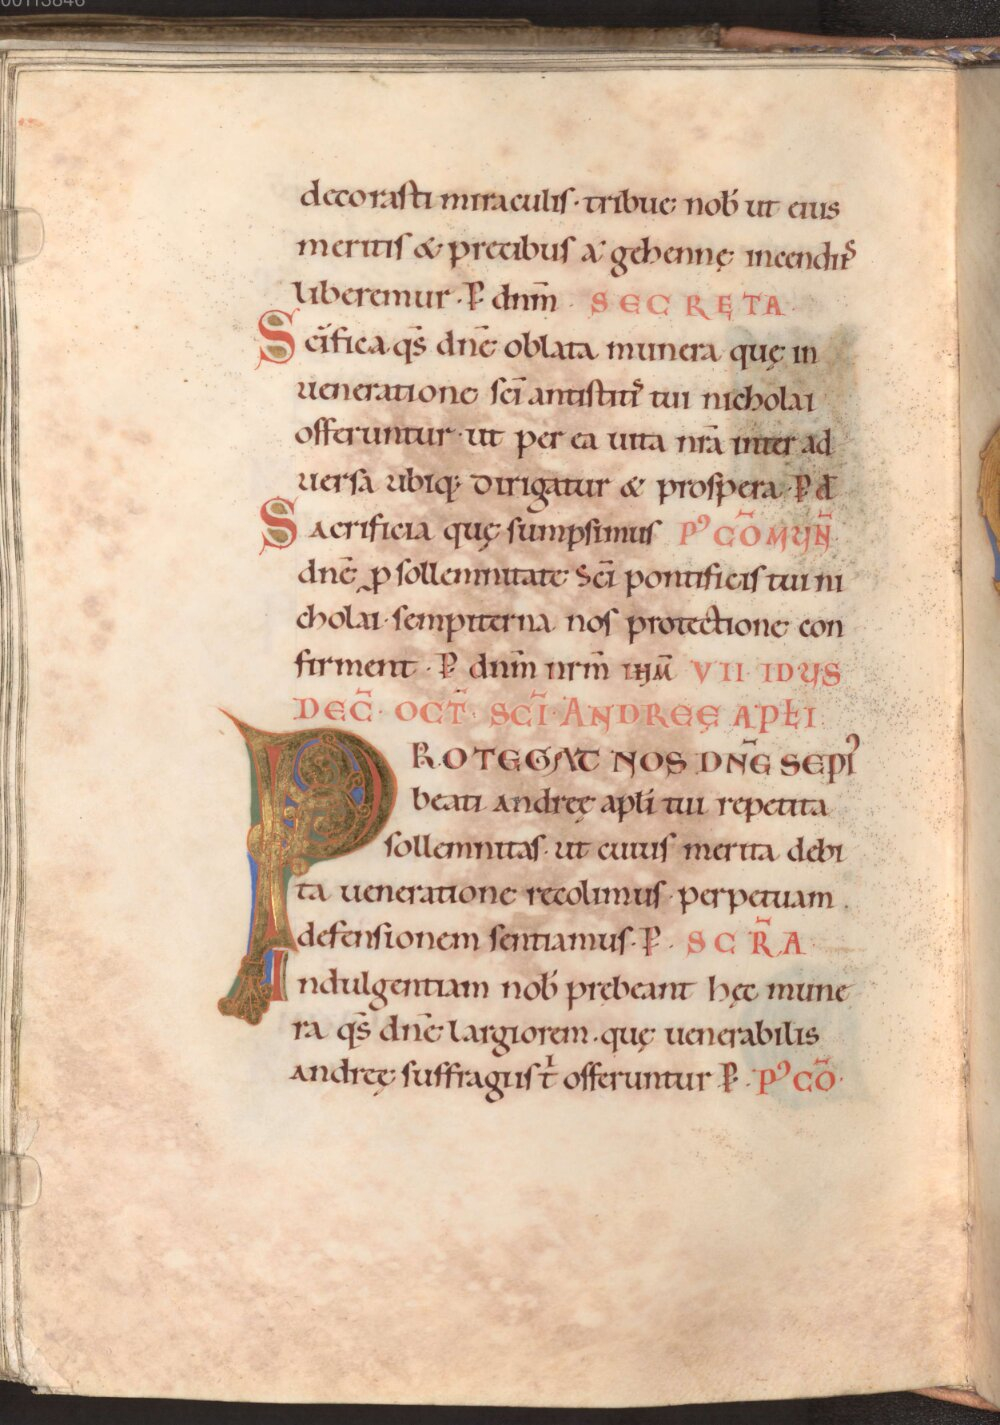 decorasti miraculis · tribue nob̄ ut eius
meritis & precibus a gehennę incendiis
liberemur · P dnm̄ · SECRETA ·
Scīfica qs̄ dnē oblata munera quę in
ueneratione scī antistitis tui nicholai
offeruntur · ut per ea uita nrā inter ad
uersa ubiq; dirigatur & prospera · P d̄
Sacrificia quę sumpsimus P᾽ COM̄UN̄
dnē ꝓ sollemnitate Scī pontificis tui ni
cholai · sempiterna nos protectione con
firment · P dnm̄ nrm̄ ihm̄ VII · IDUS
DEC̄ · OCT̄ · SCĪ · ANDREĘ APŁI ·
PROTEGAT NOS DN̄E SEPI᾽
beati andreę apłi tui repetita
sollemnitas · ut cuius merita debi
ta ueneratione recolimus · perpetuam
defensionem sentiamus · P · SCR̄A
Indulgentiam nob̄ prębeant hęc mune
ra qs̄ dnē largiorem · quę uenerabilis
andreę suffragiis t offeruntur P · P᾽ CŌ ·